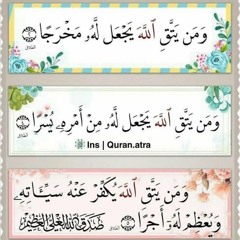 وَمَن يَتَّقِ ٱللَّهَ يَجْعَل لَّهُۥ مَخْرَجًا
وَمَن يَتَّقِ ٱللَّهَ يَجْعَل لَّهُۥ مِنْ أَمْرِهِۦ يُسْرًا
Ins | Quran.atra
وَمَن يَتَّقِ ٱللَّهَ يُكَفِّرْ عَنْهُ سَيِّـَٔاتِهِۦ
وَيُعْظِمْ لَهُۥٓ أَجْرًا صَدَقَ اللهُ العَلِيُّ العَظِيمُ